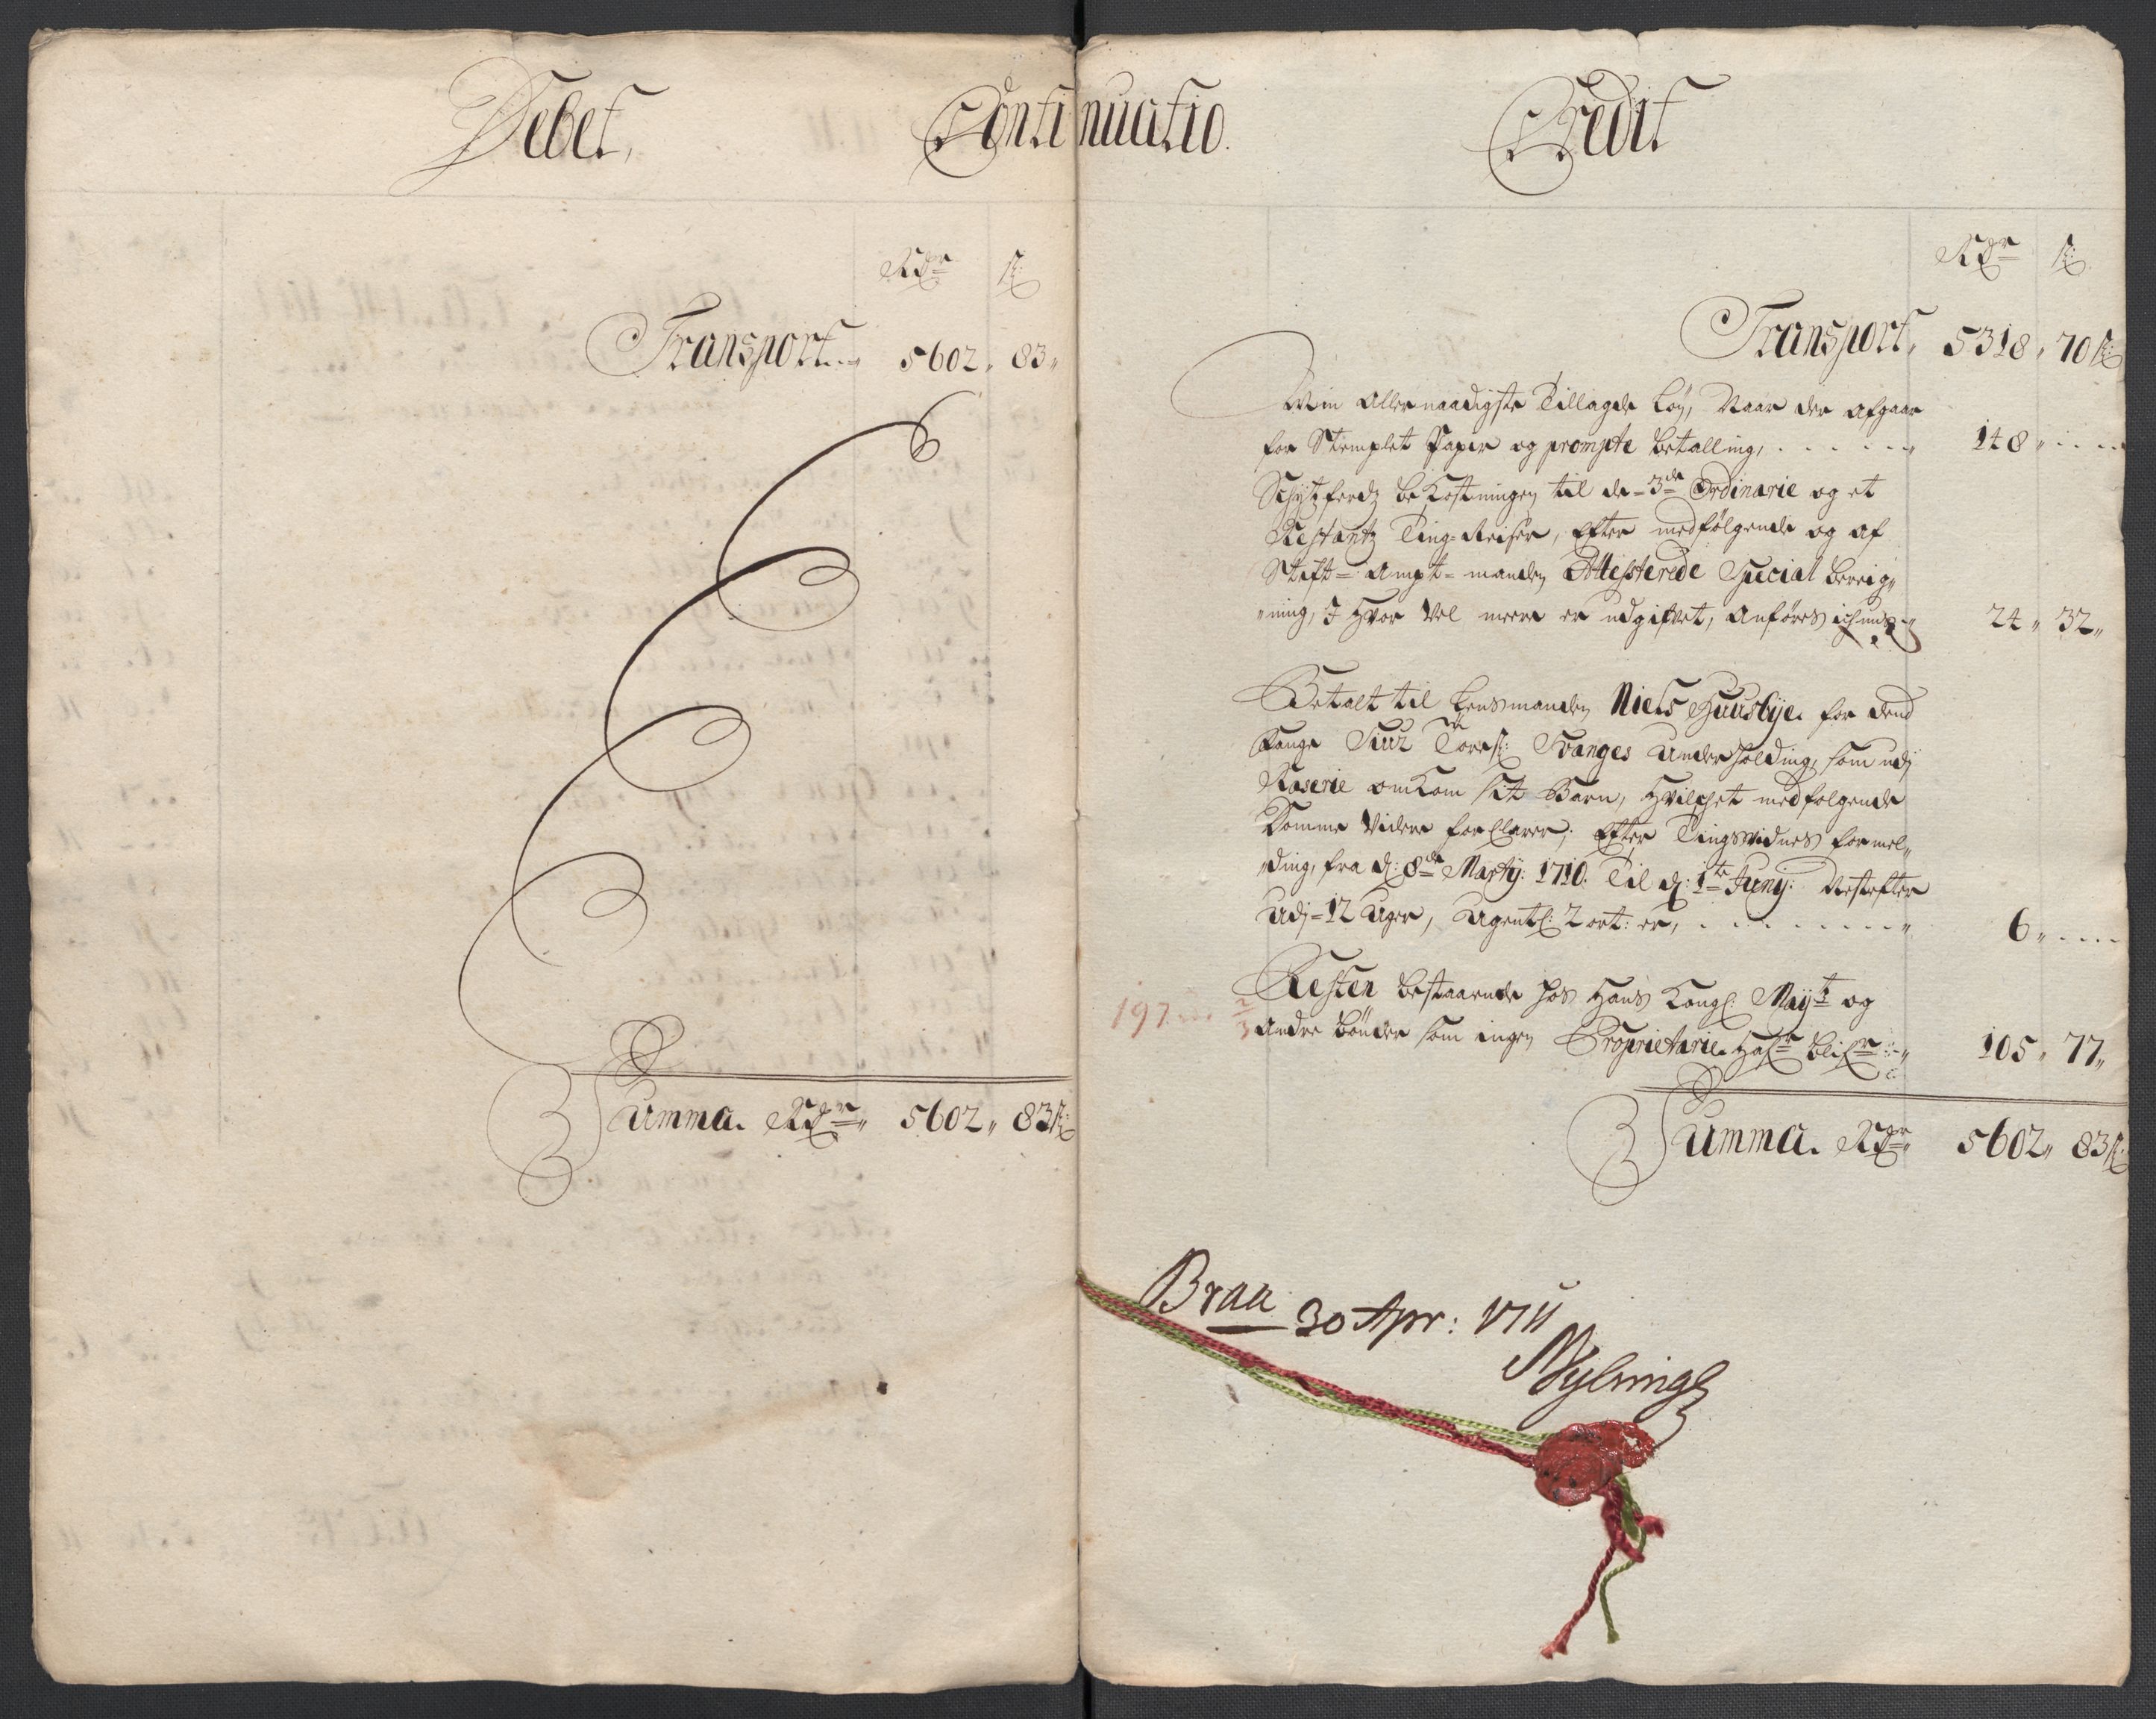 Debet,
Continuatio.
Credit
Rdr ß
Transport.. 5602 „ 83 „
Summa. Rdr „ 5602 „ 83 ß
Rdr ß
Transport, 5318 „ 70 ß
Min Allernaadigste Tillagde Løn, Naar der afgaar
for Stemplet Papir og prompte Betalling, . . . . . „ 148 „ . . . .
Schytzferdz beKostningen til de 3de Ordinarie og et
Restantz Ting-Reiser, Efter medfølgende og af
Stift-Ampt-manden Attesterede Special bereig„
„ning, I Hvor Vel meere er udgifvet, Anføres ichuns „ 24 „ 32 „
Betalt til Lensmanden Niels Huusbye. for dend
Fange Siur Svanges Underholding, som udj
Raserie omkom sit Barn, Hvilchet medfølgende
Domme Videre forClarer; Efter Tingsvidnes formel„
„ding, fra d: 8de Martij: 1710. Til d: 1te Junij:
Udj 12 Uger, Ugentl: 2 ort: er, . . . . . . . . „ 6 „ . . . .
Resten bestaaende hos Hans Kongl: Mayts og
197 2/3
Andre bønder som ingen Proprietarie. Hafr blifr „ 105 „ 77 „
Summa. Rdr „ 5602 „ 83 ß
Braa 30 Apr: 1711